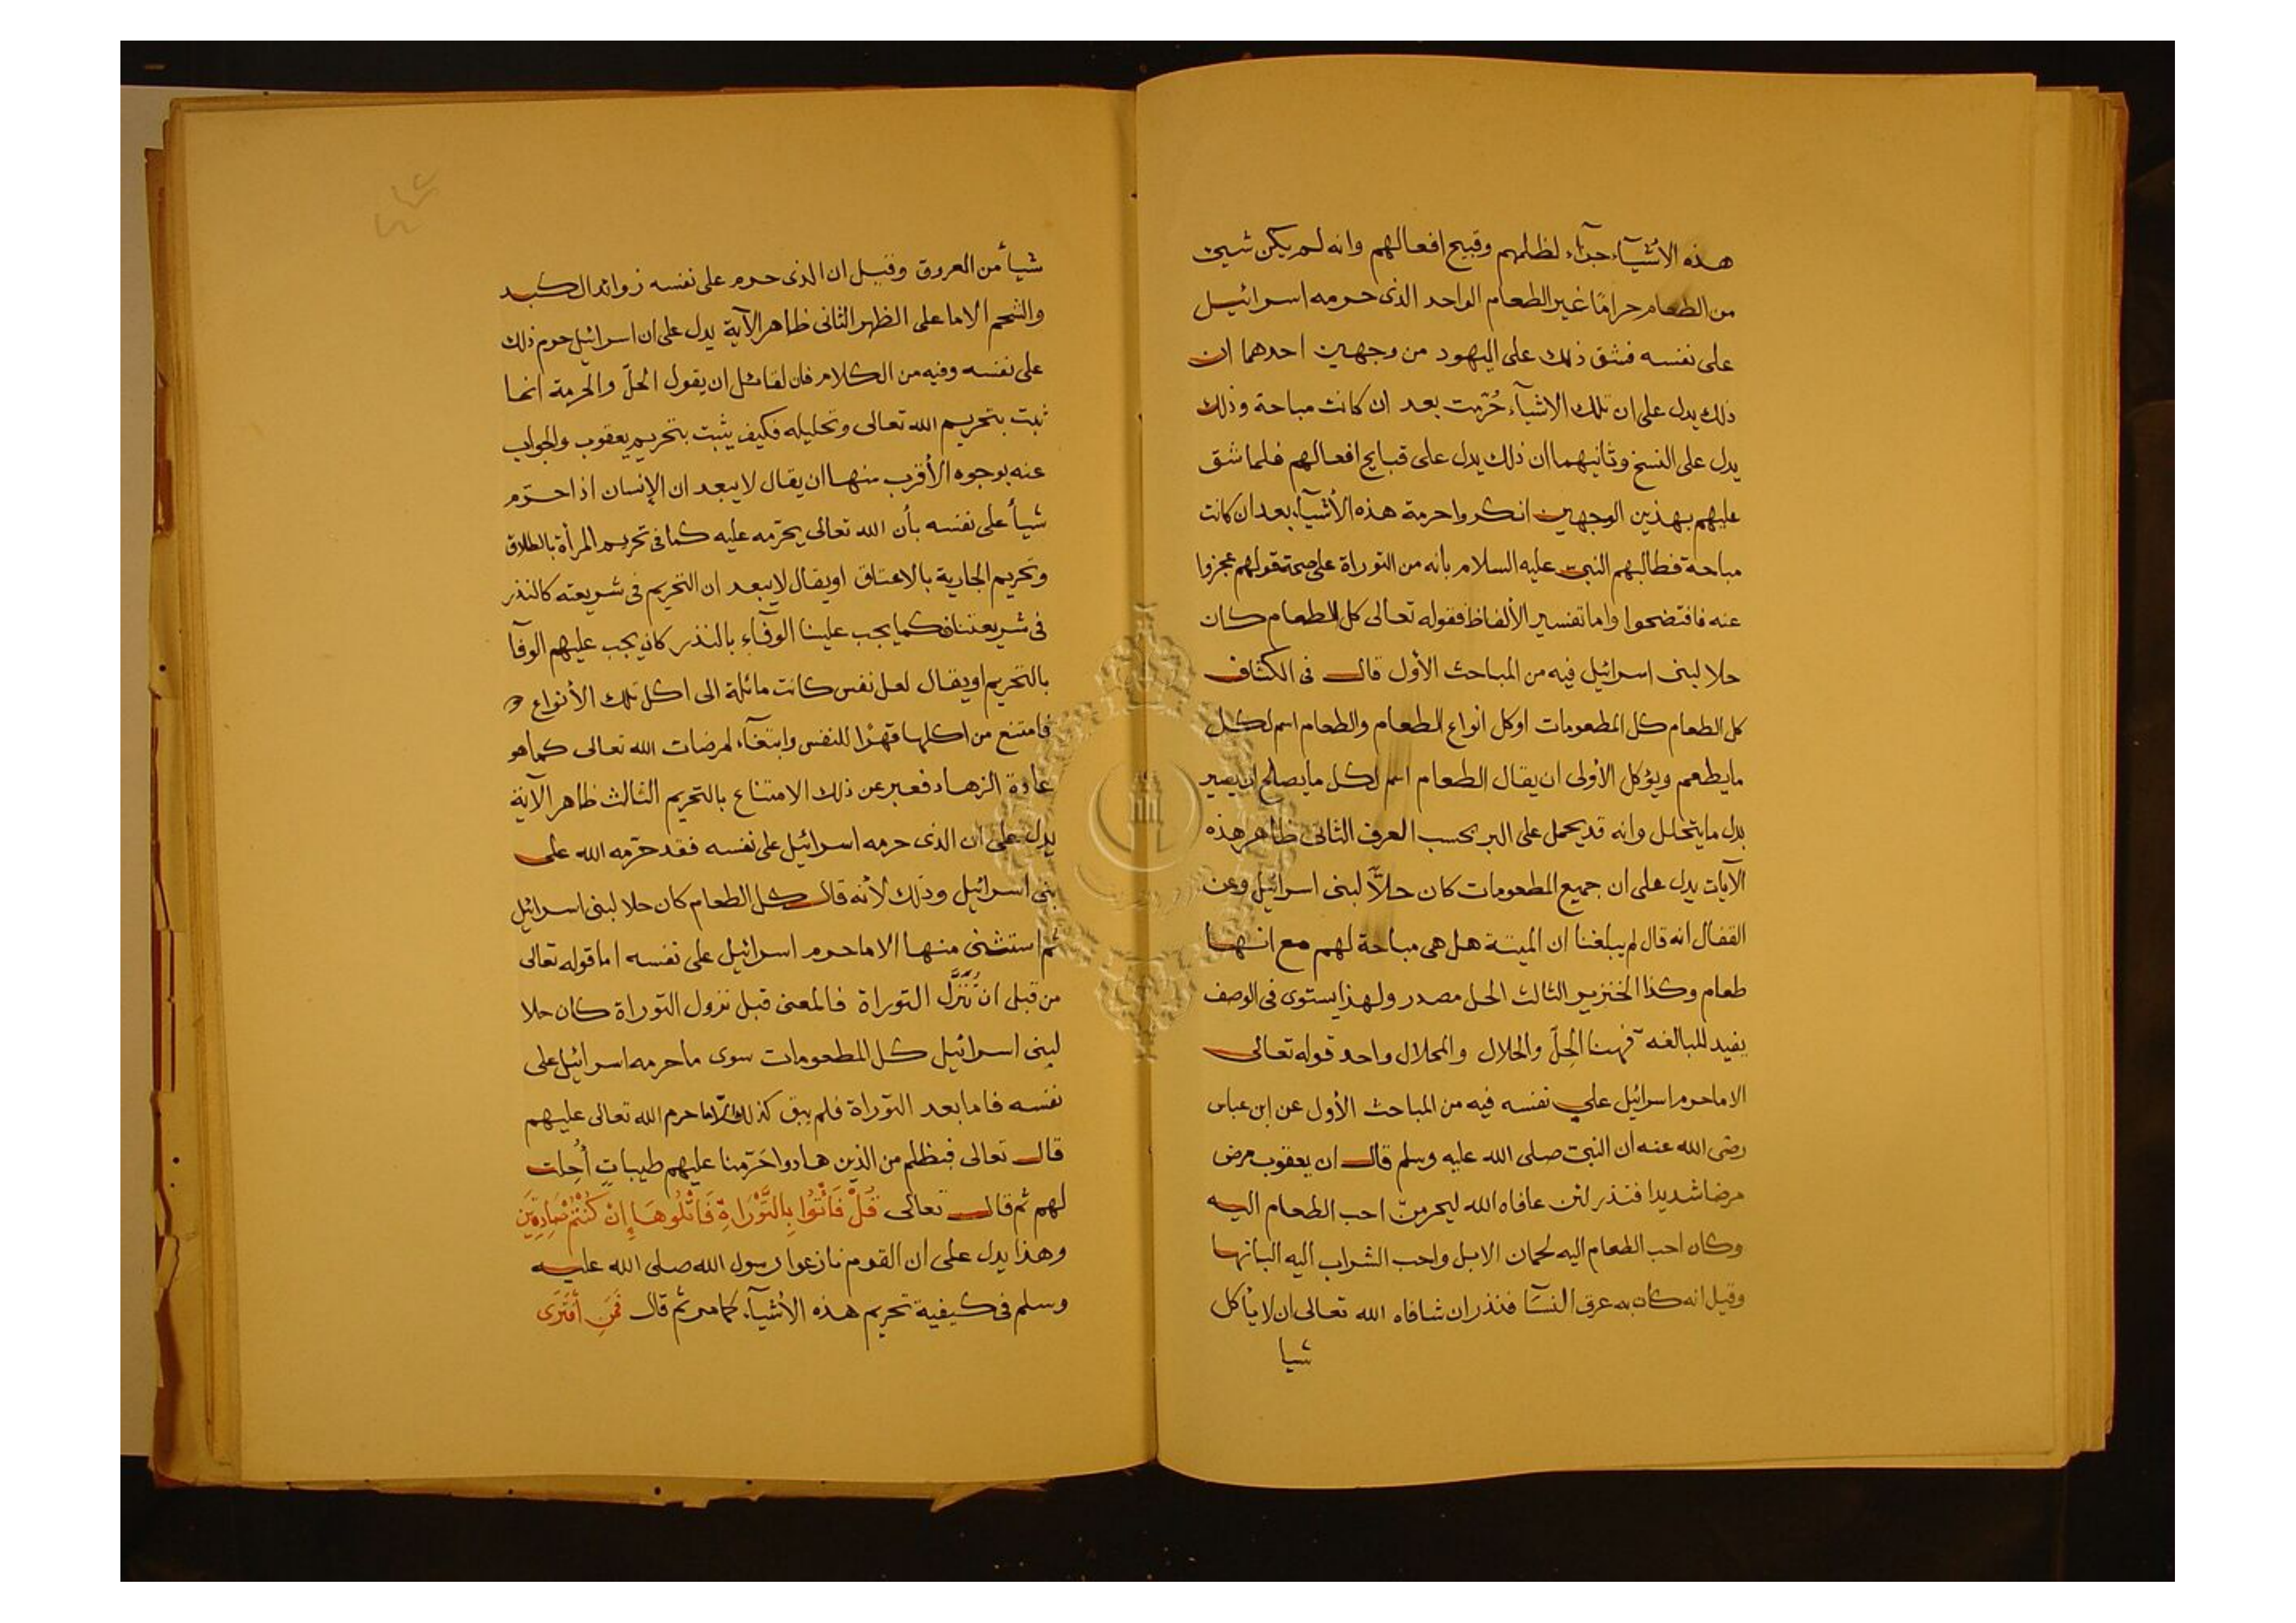 هذه الأشيآء جزآء لظلمهم وقبيح افعالهم وانه لم يكن شيئ
من الطعام حرامًا غير الطعام الواحد الذى حرمه اسرائيل
على نفسه فشق ذلك على اليهود من وجهين احدهما ان
ذلك يدل على ان تلك الاشيآء حُرّمت بعد ان كانت مباحة وذلك
يدل على النسخ وثانيهما ان ذلك يدل على قبايح افعالهم فلما شق
عليهم بهذين الوجهين انكروا حرمة هذه الأشيآء بعد ان كانت
مباحة فطالبهم النبى عليه السلام بأنه من التوراة على صحة قولهم عجزوا
عنه فافتضحوا واما تفسير الألفاظ فقوله تعالى كل الطعام كان
حلا لبنى اسرائيل فيه من المباحث الأول قال فى الكشاف
كل الطعام كل المطعومات اوكل انواع الطعام والطعام اسم لكل
ما يطعم ويؤكل الأولى ان يقال الطعام اسم لكل ما يصلح ان يصير
بدل ما يتحلل وانه قد يحمل على البر بحسب العرف الثانى ظاهر هذه
الآيات يدل على ان جميع المطعومات كان حلاًّ لبنى اسرائيل وعن
القفال انه قال لم يبلغنا ان الميتة هل هى مباحة لهم مع انها
طعام وكذا الخنزير الثالث الحل مصدر ولهذا يستوى فى الوصف
يفيد للمبالغه فهنا الحِلّ والحلال والمحلال واحد قوله تعالى
الا ما حرم اسرائيل على نفسه فيه من المباحث الأول عن ابن عباس
رضى الله عنه ان النبى صلى الله عليه وسلم قال ان يعقوب مرض
مرضا شديدا فنذر لئن عافاه الله ليحرمنّ احب الطعام اليه
وكان احب الطعام اليه لحمان الابل واحب الشراب اليه البانها
وقيل انه كان به عرق النسَا فنذر ان شافاه الله تعالى ان لا يأكل
شيا
شيأ من العروق وقيل ان الذى حرم على نفسه زوائد الكبد
والشحم الا ما على الظهر الثانى ظاهر الآية يدل على ان اسرائيل حرم ذلك
على نفسه وفيه من الكلام فان لقائل ان يقول الحلّ والحرمة انما
ثبت بتحريم الله تعالى وتحليله فكيف يثبت بتحريم يعقوب والجواب
عنه بوجوه الأقرب منها ان يقال لا يبعد ان الإنسان اذا حرّم
شيأ على نفسه بأن الله تعالى يحرّمه عليه كما فى تحريم المرأة بالطلاق
وتحريم الجارية بالاعتاق او يقال لا يبعد ان التحريم فى شريعته كالنذر
فى شريعتنا فكما يجب علينا الوفآء بالنذر كان يجب عليهم الوفآ
بالتحريم او يقال لعل نفس كانت مائلة الى اكل تلك الأنواع
فامتنع من اكلها قهرًا للنفس وابتغآء لمرضات الله تعالى كما هو
عادة الزهاد فعبر عن ذلك الامتناع بالتحريم الثالث ظاهر الآية
يدل على ان الذى حرمه اسرائيل على نفسه فقد حرّمه الله على
بنى اسرائيل وذلك لأنه قال كل الطعام كان حلا لبنى اسرائيل
ثم استثنى منها الا ما حرم اسرائيل على نفسه اما قوله تعالى
من قبل ان تُنَزَّل التوراة فالمعنى قبل نزول التوراة كان حلا
لبنى اسرائيل كل المطعومات سوى ما حرمه اسرائيل على
نفسه فاما بعد التوراة فلم يبق كذلك حرم الله تعالى عليهم
قال تعالى فبظلم من الذين هادوا حَرّمنا عليهم طيباتٍ أُحِلت
لهم ثم قال تعالى قُلْ فَأْتُوا بِالتَّوْرَاةِ فَاتْلُوهَا إِنْ كُنْتُمْ صَادِقِينَ
وهذا يدل على ان القوم نازعوا رسول الله صلى الله عليه
وسلم فى كيفية تحريم هذه الأشيآء كما مر ثم قال فَمَنِ أفْتَرَى